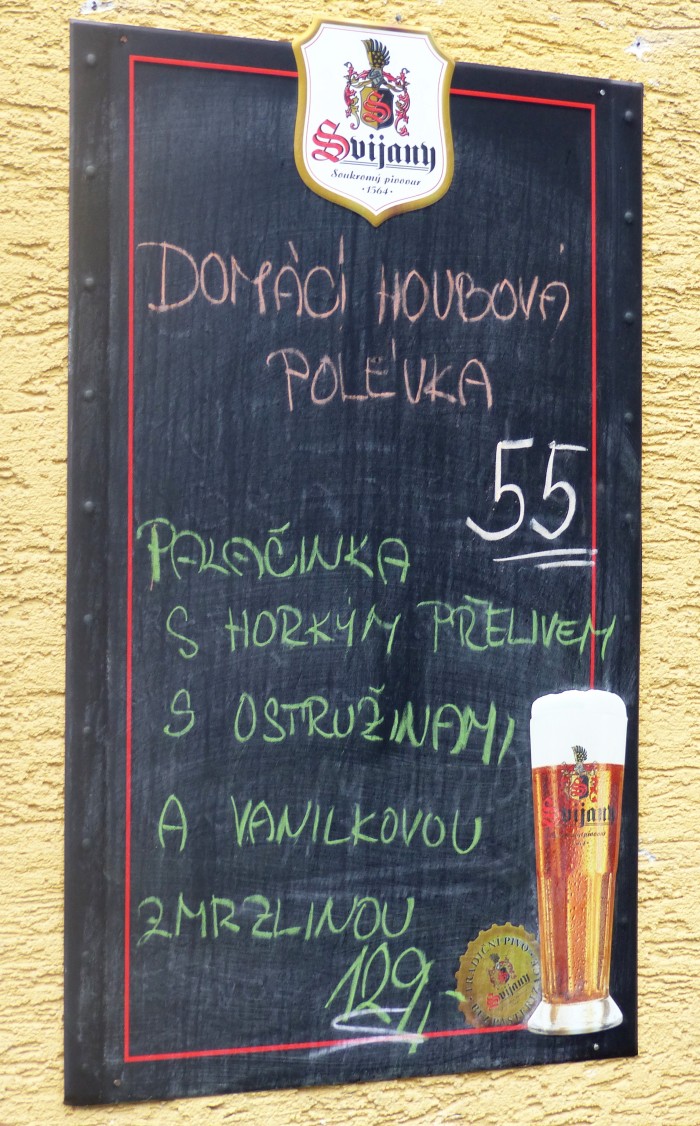 Svijany
Soukromý pivovar
· 1564 ·
DOMÁCÍ HOUBOVÁ
POLÉVKA
55
PALAČINKA
S HORKÝM PŘELIVEM
S OSTRUŽINAMI
A VANILKOVOU
ZMRZLINOU
129,-
Svijany
Svijany